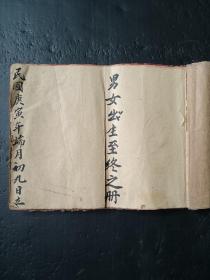 男女出生至终之册
民國庚寅年端月初九日立